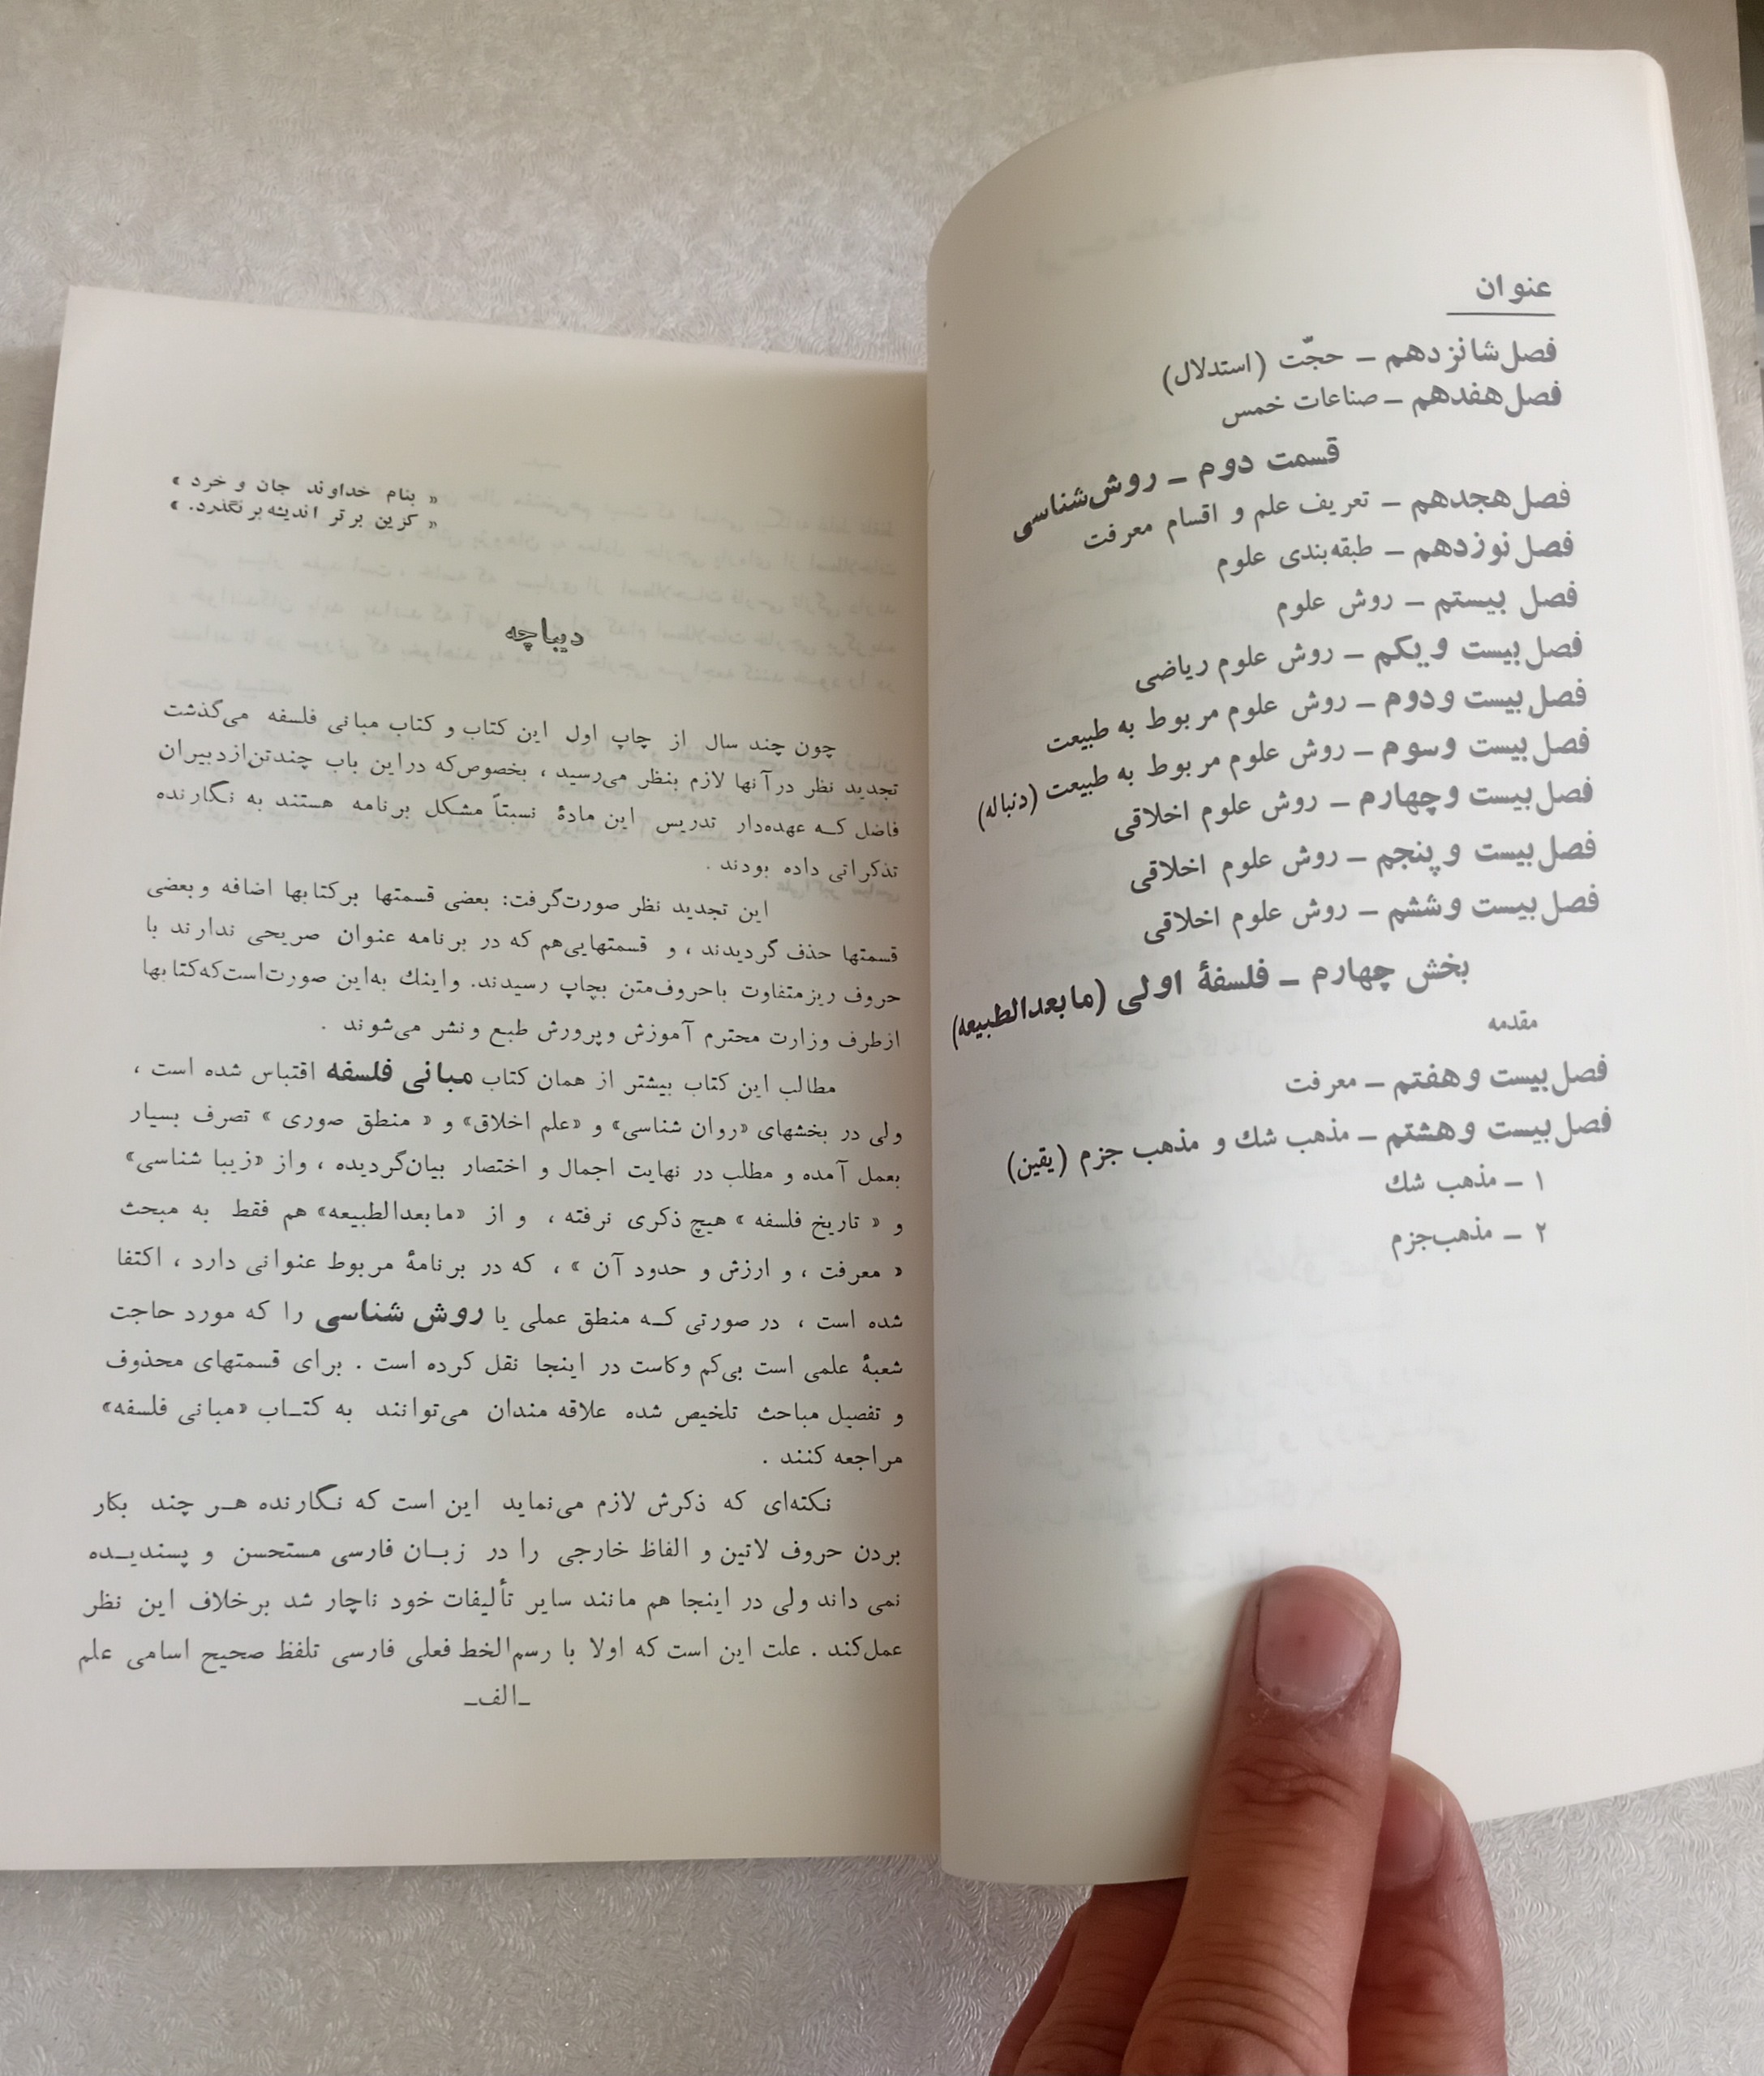 عنوان
فصل شانزدهم – حجّت (استدلال)
فصل هفدهم – صناعات خمس
قسمت دوم – روش‌شناسی
فصل هجدهم – تعریف علم و اقسام معرفت
فصل نوزدهم – طبقه‌بندی علوم
فصل بیستم – روش علوم
فصل بیست و یکم – روش علوم ریاضی
فصل بیست و دوم – روش علوم مربوط به طبیعت
فصل بیست و سوم – روش علوم مربوط به طبیعت (دنباله)
فصل بیست و چهارم – روش علوم اخلاقی
فصل بیست و پنجم – روش علوم اخلاقی
فصل بیست و ششم – روش علوم اخلاقی
بخش چهارم – فلسفهٔ اولی (مابعدالطبیعه)
مقدمه
فصل بیست و هفتم – معرفت
فصل بیست و هشتم – مذهب شك و مذهب جزم (یقین)
۱ – مذهب شك
۲ – مذهب‌جزم
« بنام خداوند جان و خرد »
« کزین برتر اندیشه بر نگذرد. »
دیباچه
چون چند سال از چاپ اول این کتاب و کتاب مبانی فلسفه می‌گذشت
تجدید نظر در آنها لازم بنظر می‌رسید ، بخصوص‌که دراین باب چندتن‌ازدبیران
فاضل کـه عهده‌دار تدریس این مادهٔ نسبتاً مشکل برنامه هستند به نگارنده
تذکراتی داده بودند .
این تجدید نظر صورت‌گرفت: بعضی قسمتها برکتابها اضافه وبعضی
قسمتها حذف گردیدند ، و قسمتهایی‌هم که در برنامه عنوان صریحی ندارند با
حروف ریزمتفاوت باحروف‌متن بچاپ رسیدند. واینك به‌این صورت‌است‌که‌کتابها
ازطرف وزارت محترم آموزش وپرورش طبع ونشر می‌شوند .
مطالب این کتاب بیشتر از همان کتاب مبانی فلسفه اقتباس شده است ،
ولی در بخشهای «روان شناسی» و «علم اخلاق» و « منطق صوری » تصرف بسیار
بعمل آمده و مطلب در نهایت اجمال و اختصار بیان‌گردیده ، واز «زیبا شناسی»
و « تاریخ فلسفه » هیچ ذکری نرفته ، و از «مابعدالطبیعه» هم فقط به مبحث
« معرفت ، و ارزش و حدود آن » ، که در برنامهٔ مربوط عنوانی دارد ، اکتفا
شده است ، در صورتی کـه منطق عملی یا روش شناسی را که مورد حاجت
شعبهٔ علمی است بی‌کم وکاست در اینجا نقل کرده است . برای قسمتهای محذوف
و تفصیل مباحث تلخیص شده علاقه مندان می‌توانند به کتـاب «مبانی فلسفه»
مراجعه کنند .
نکته‌ای که ذکرش لازم می‌نماید این است که نگارنده هـر چند بکار
بردن حروف لاتین و الفاظ خارجی را در زبـان فارسی مستحسن و پسندیـده
نمی داند ولی در اینجا هم مانند سایر تألیفات خود ناچار شد برخلاف این نظر
عمل‌کند . علت این است که اولا با رسم‌الخط فعلی فارسی تلفظ صحیح اسامی علم
–الف–